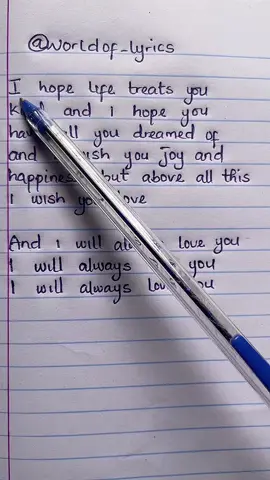 @worldof_lyrics
I hope life treats you
and I hope you
you dreamed of
and you joy and
happiness but above all this
I wish love
And I will love you
I will always you
I will always